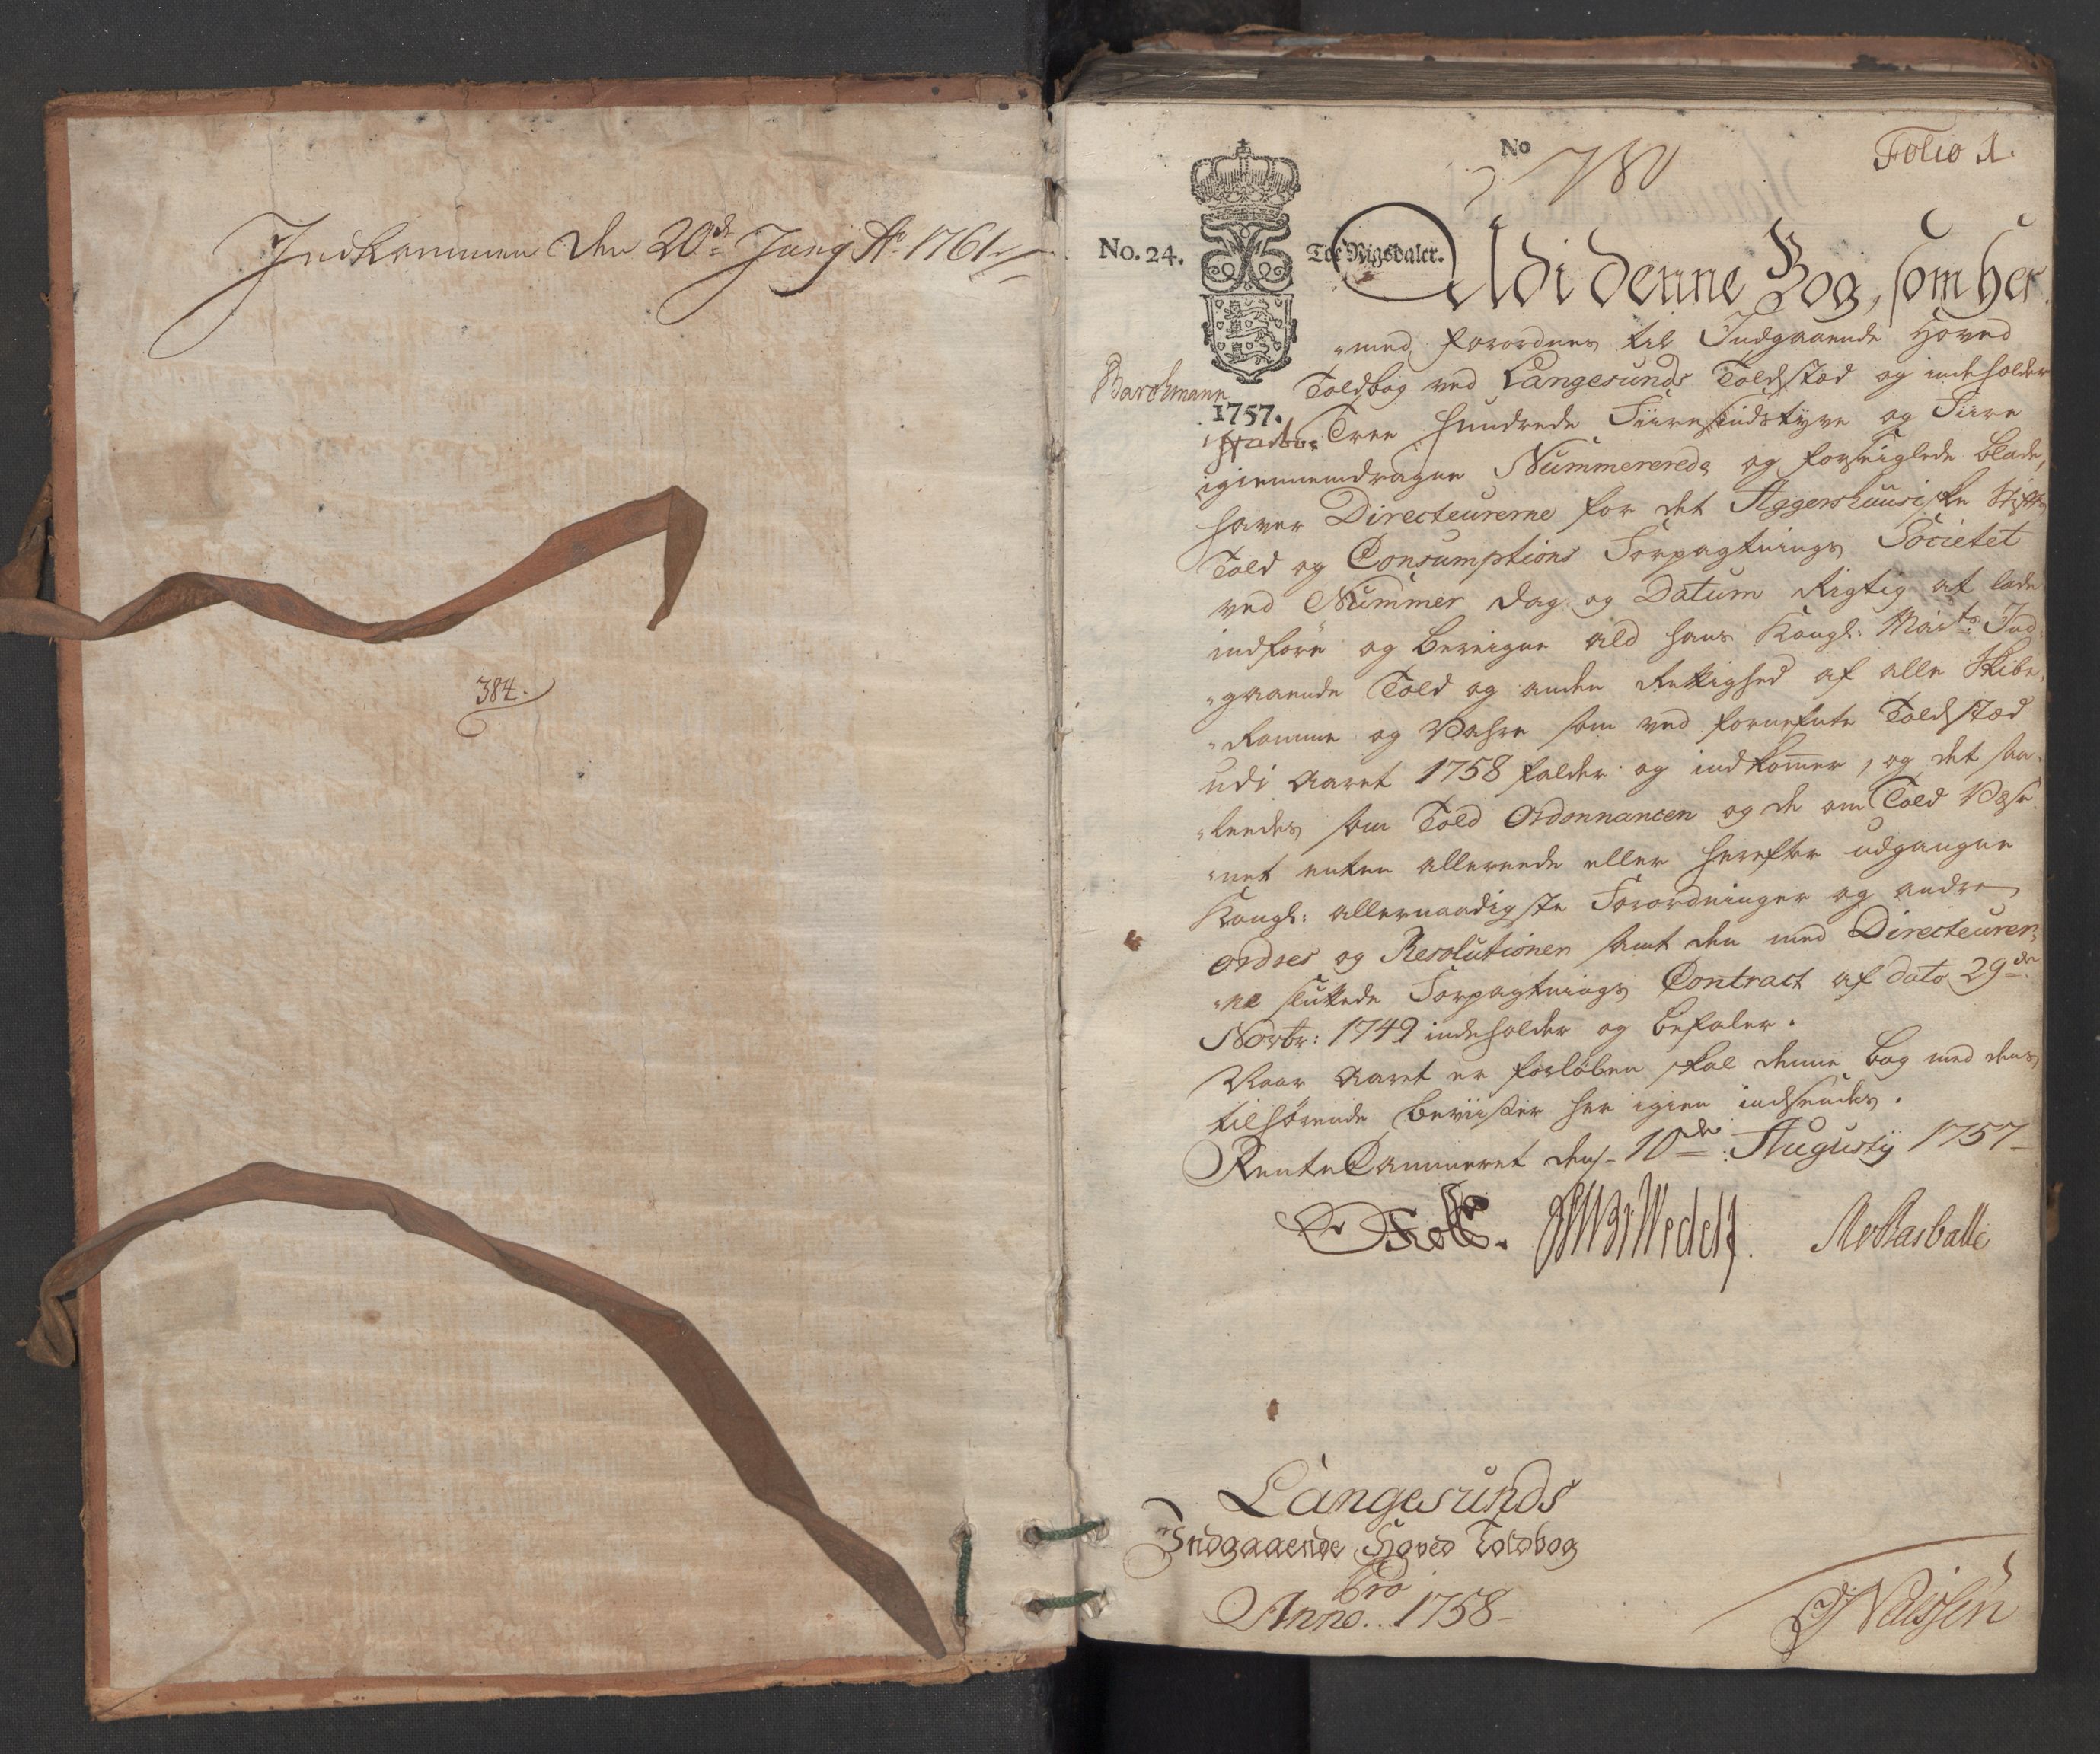 Indkommen den 20de Junij Ao 1761
384.
No 780
Folio 1.
No. 24.
Tol Rigsdaler.
Udi denne Bog, som her
-med forordnes til Indgaaende Hoved
Barchmann
Toldbog ved Langesunds Toldsted og indeholder
1757.
Tree hundrede Fiiresindstyve og Fiire
igiennemdragne Nummererede og forseiglede blade,
haver Directeurerne for det Aggershuusiske Stifts
Told og Consumptions Forpagtnings Societet
ved Nummer Dag og Datum Rigtig at lade
indføre og bereigne ald hans Kongl: Maits Ind-
-gaaende Told og anden Rettighed af alle Skibe
-Romme og Vahre som ved fornefnte Toldsted
udi Aaret 1758 falder og indkommer, og det saa-
-leedes som Told Ordonnancen og de om Told Væse
-net enten allereede eller herefter udgangne
Kongl: allernaadigste Forordninger og andre
Ordres og Resolutioner samt den med Directeurer-
-ne sluttede Forpagtnings Contract af dato 29de
Novbr: 1749 indeholder og befaler.
Naar Aaret er forløben skal denne bog med dens
tilhørende beviiser her igien indsendes.
RenteCammeret den 10de Augustij 1757
Langesunds
Indgaaende Hoved Toldbog
Pro
Anno. 1758